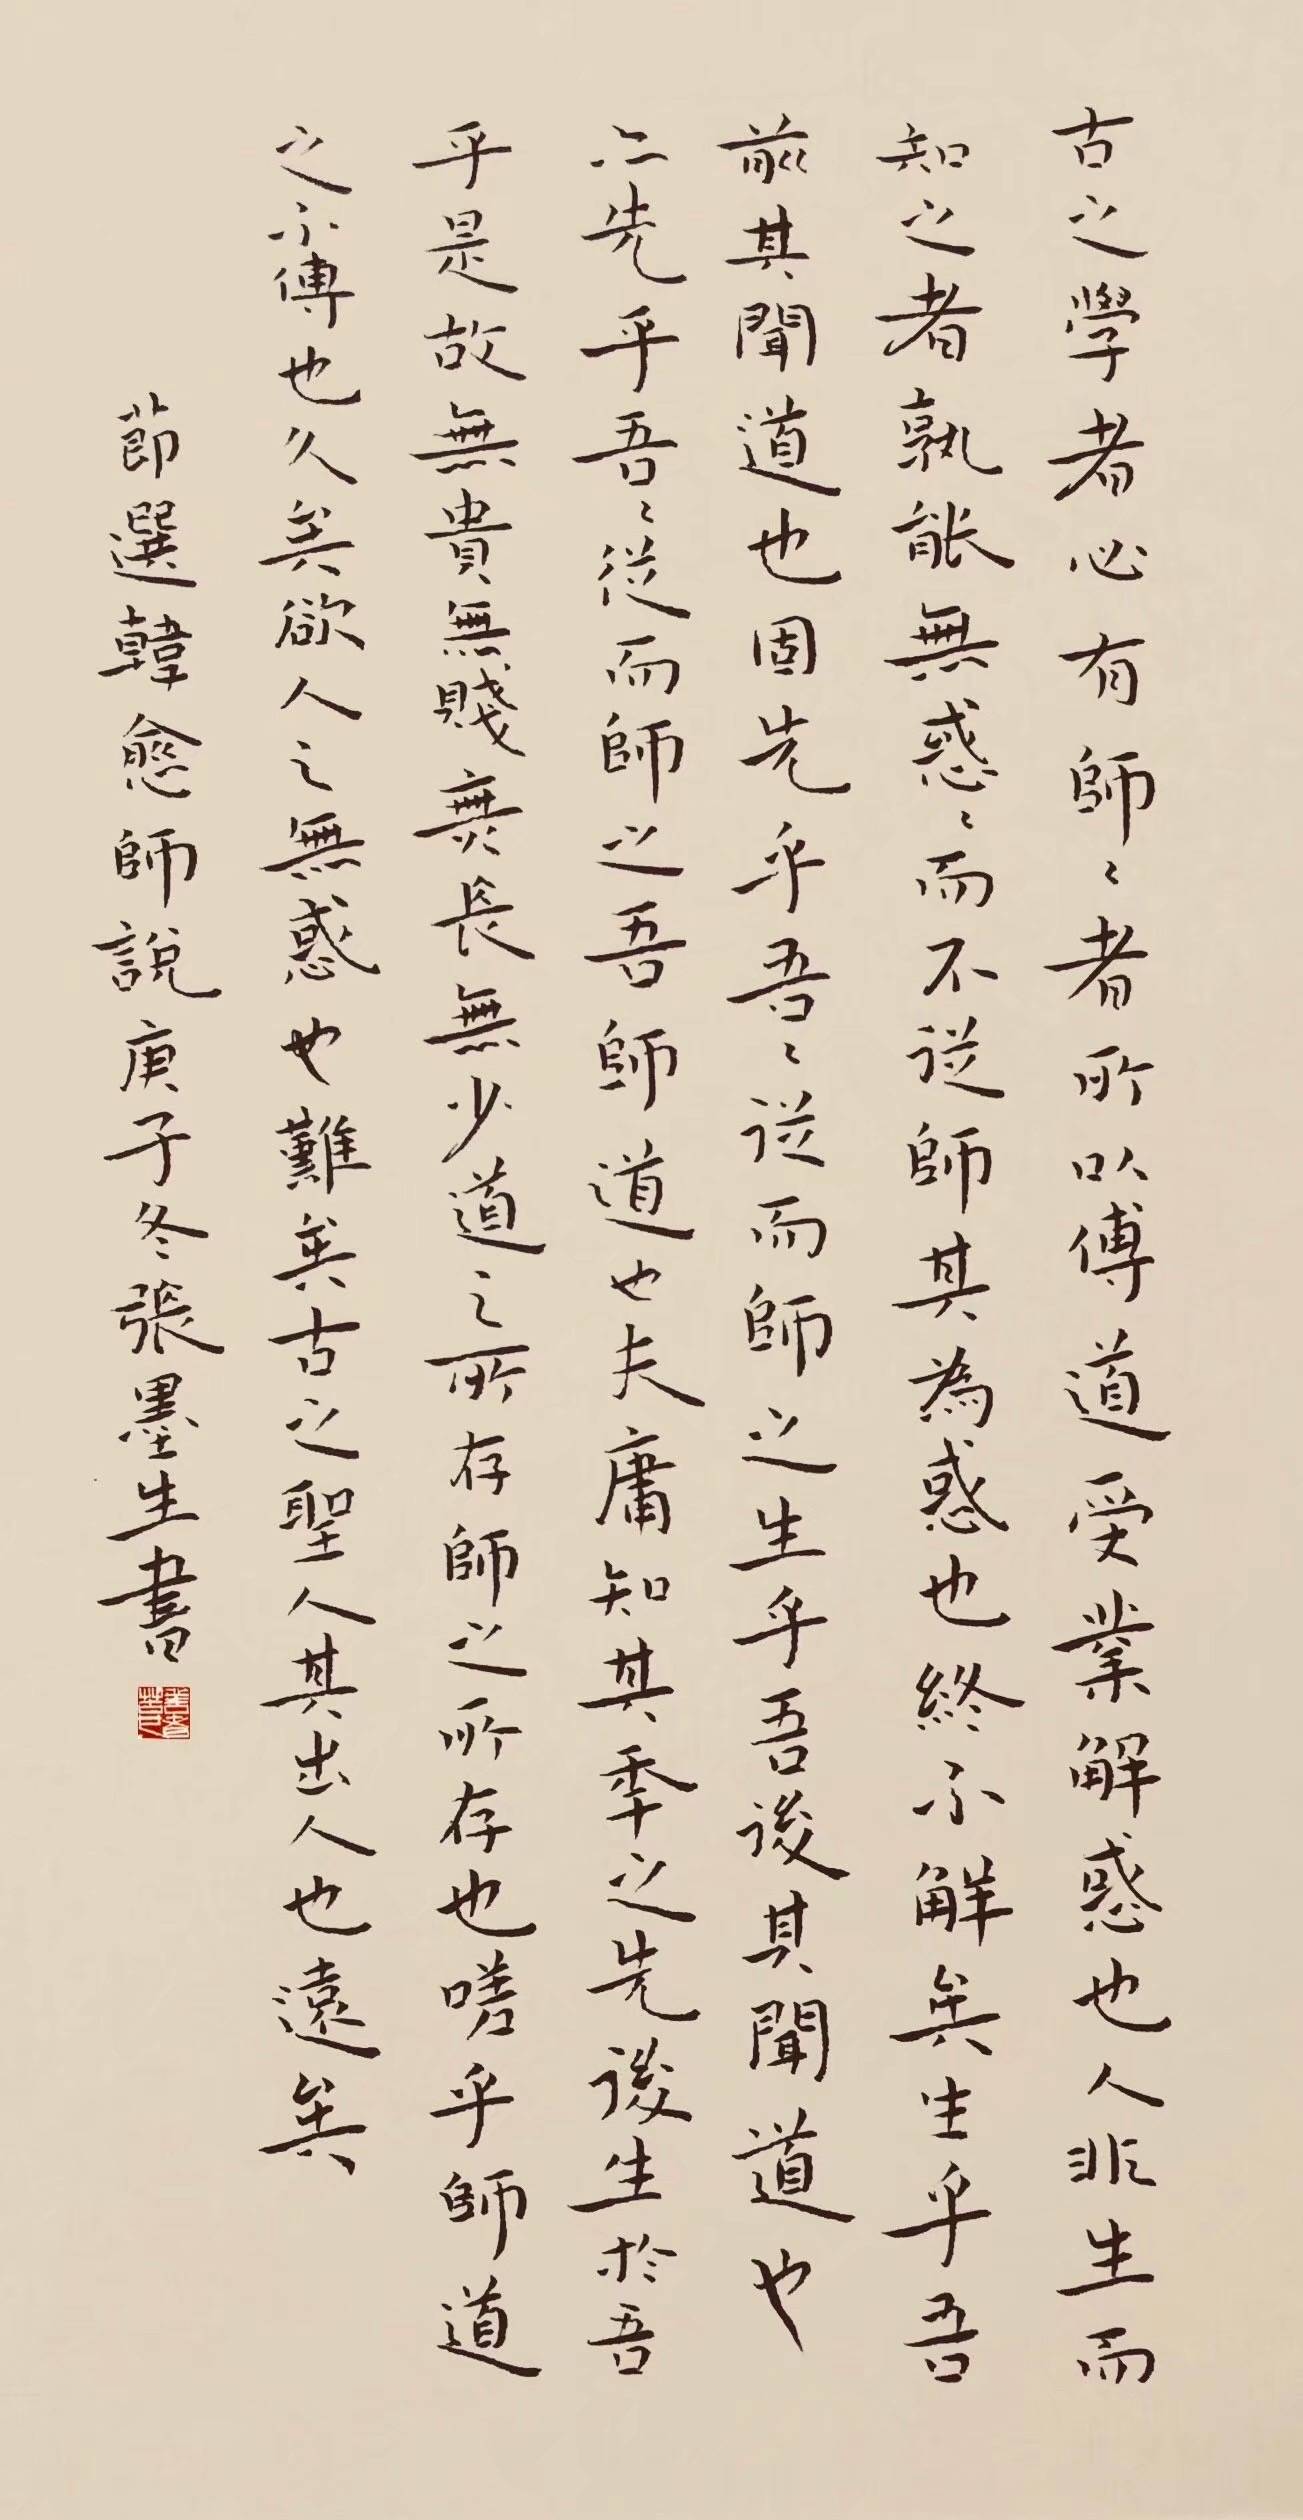 古之學者必有師〻者所以傳道受業解惑也人非生而
知之者孰能無惑〻而不從師其為惑也終不解矣生乎吾
前其聞道也固先乎吾〻從而師之生乎吾後其聞道也
亦先乎吾〻從而師之吾師道也夫庸知其年之先後生於吾
乎是故無貴無賤無長無少道之所存師之所存也嗟乎師道
之不傳也久矣欲人之無惑也難矣古之聖人其出人也遠矣
節選韓愈師說庚子冬張墨生書